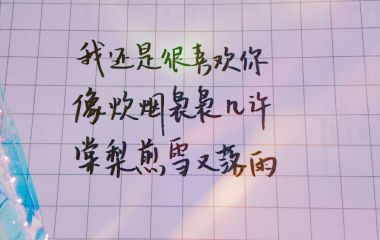 我还是很喜欢你
像炊烟袅袅几许
棠梨煎雪又落雨